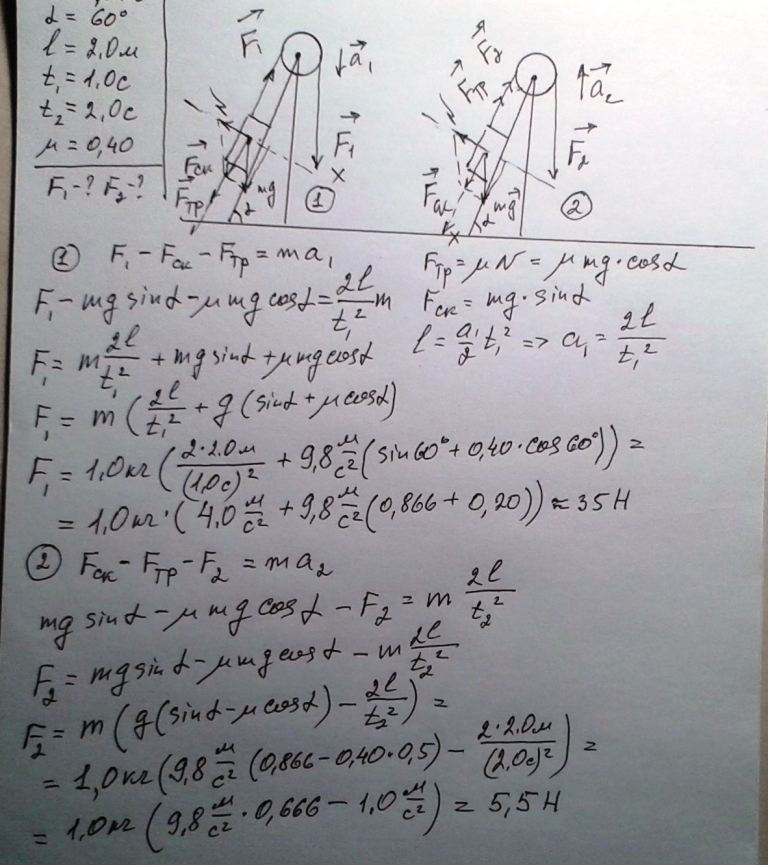 α = 60°
l = 2,0м
t₁ = 1,0с
t₂ = 2,0с
μ = 0,40
F₁ - ? F₂ - ?
F₁ a₁ F₁ x Fск Fтр mg α ①
F₂ Fтр a₂ F₂ Fск mg α x ②
① F₁ - Fск - Fтр = ma₁
F₁ - mg sinα - μmg cosα = 2l/t₁² m
F₁ = m 2l/t₁² + mg sinα + μmg cosα
F₁ = m (2l/t₁² + g (sinα + μ cosα)
Fтр = μN = μmg·cosα
Fск = mg·sinα
l = a₁/2 t₁² => a₁ = 2l/t₁²
F₁ = 1,0кг (2·2,0м/(1,0с)² + 9,8 м/с² (sin60° + 0,40·cos60°)) =
= 1,0кг·(4,0 м/с² + 9,8 м/с² (0,866 + 0,20)) ≈ 35Н
② Fск - Fтр - F₂ = ma₂
mg sinα - μmg cosα - F₂ = m 2l/t₂²
F₂ = mg sinα - μmg cosα - m 2l/t₂²
F₂ = m (g (sinα - μ cosα) - 2l/t₂²) =
= 1,0кг (9,8 м/с² (0,866 - 0,40·0,5) - 2·2,0м/(2,0с)²) =
= 1,0кг (9,8 м/с² · 0,666 - 1,0 м/с²) = 5,5Н